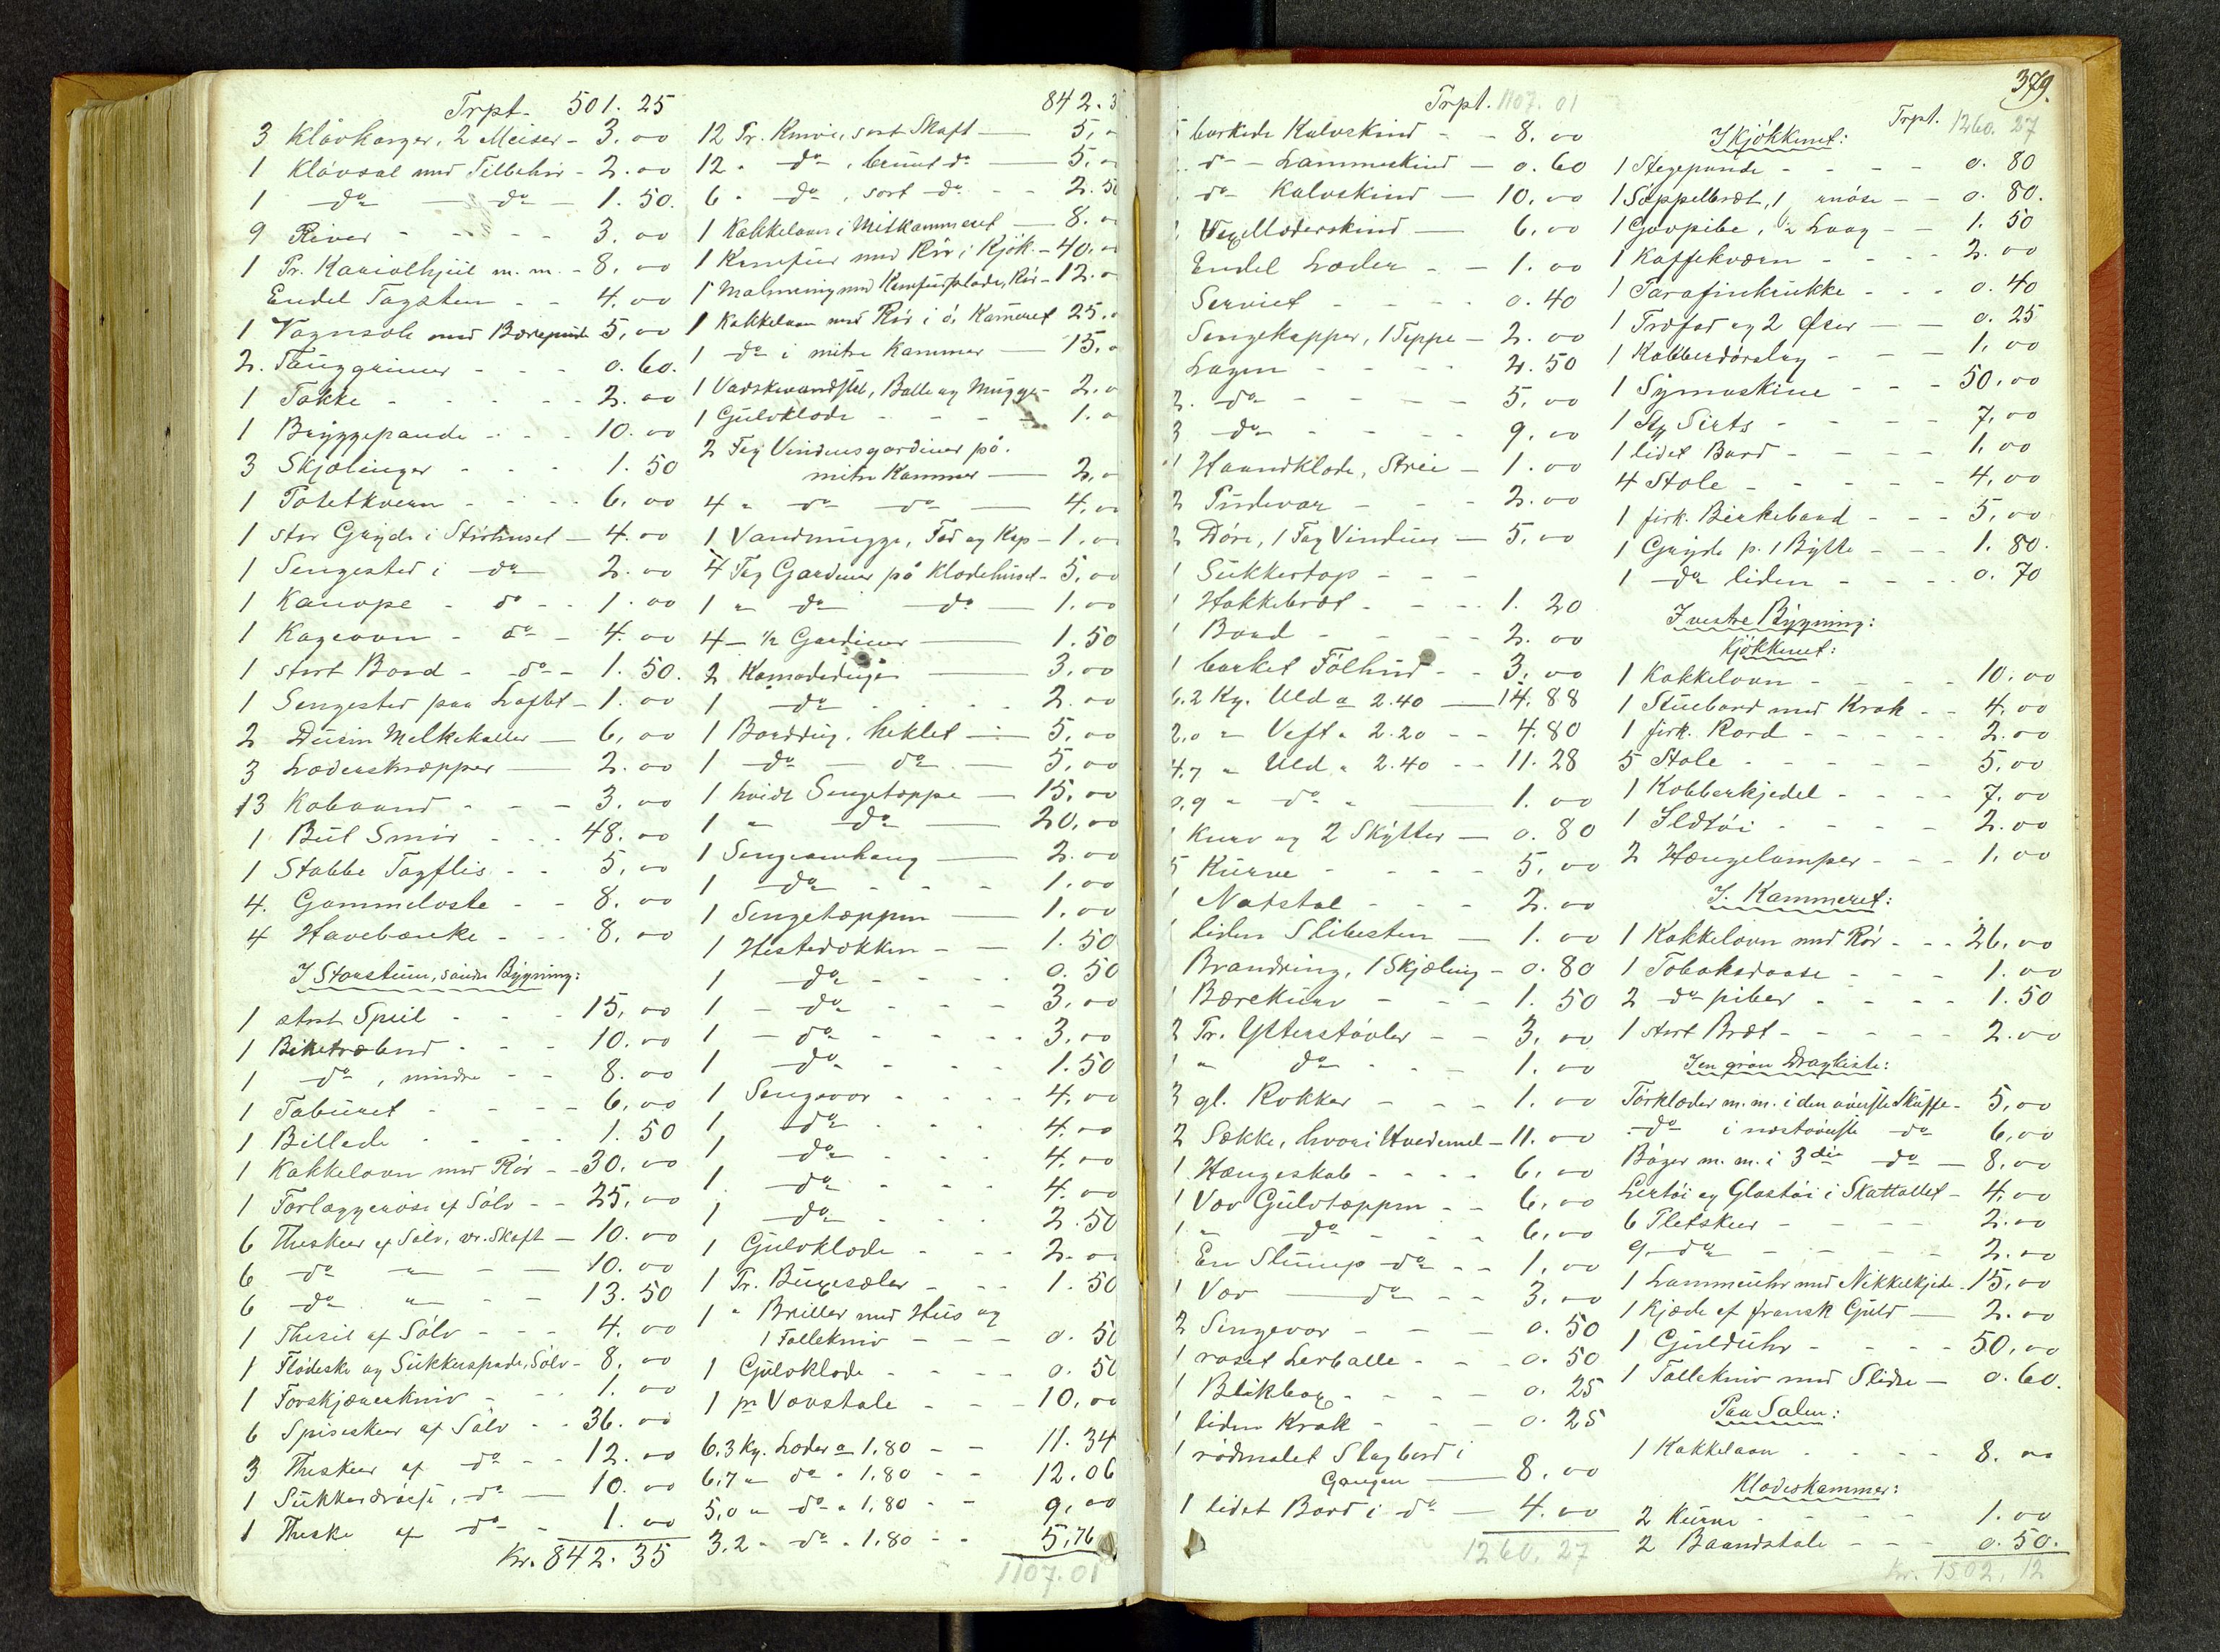 Trpt. 501.25
3 Kløvkorger, 2 Meiser - 3.00
1 Kløvsal med Tilbehör - 2.00
1 do do - 1.50.
9 River - - - 3.00
1 Pr. Kariolhjul m. m. - 8.00
Endel Tagsten - - 4.00
1 Vognsole med Bærepude 5.00
2. Tauggrimer - - - 0.60.
1 Takke - - - 2.00
1 Bryggepande - - 10.00
3 Skjølinger - - - 1.50
1 Potetkvern - - - 6.00
1 stor Gryde i Störhuset - 4.00
1 Sengested i do 2.00
1 Kanope - do - 1.00
1 Kageovn - do - 4.00
1 stort Bord - do - 1.50.
1 Sengested paa Loftet - 1.00
2 Dusin Melkekaller - 6.00
3 Læderskræpper - 2.00
13 Kobaand - - - 3.00
1 Büt Smör - - - 48.00
1 Stabbe Tagflis - - 5.00
4. Gammeloste - - 8.00
4 Havebænke - - 8.00
I Storstuen, söndre Bygning:
1 stort Speil - - - 15.00
1 Birketræbord - - 10.00
1 do, mindre - - 8.00
1 Taburet - - - 6.00
1 Billede - - - 1.50
1 Kakkelovn med Rör - - 30.00
1 Forlæggerøse af Sölv - - 25.00
6 Theskeer af Sölv, vr. Skaft - 10.00
6 do " - - 10.00
6 do " - - 13.50
1 Thesil af Sölv - - - 4.00
1 Flödeske og Sukkerspade, Sölv - 8.00
1 Forskjærerkniv - - 1.00
6 Spiseskeer af Sölv - - 36.00
3 Theskeer af do - - 12.00
1 Sukkerdraase, do - 10.00
1 Theske af do - 1.00
Kr. 842.35
842.3
12 Pr. Knive, sort Skaft - 5,
12 " do, brunt do - 5.
6 " do, sort do - - 2.50
1 Kakkelovn i Mitkammeret - 8.
1 Komfur med Rör i Kjök. - 40.
1 Malmring med Komfurplade, Rör - 12.
1 Kakkelovn med Rör i ö. Kameret 25.
1 do i mitre Kammer - 15.
1 Vadskevandstel, Balle og Mugge - 2.
1 Gulvklæde - - - 1.
2 Fag Vinduesgardiner på
mitre Kammer - 2.
4 " do do - 4.
1 Vandmugge, Fad og Kop - 1.
4 Fag Gardiner på Klædehuset - 5.00
1 " do do - 1.00
4 - 1/2 Gardiner - 1.50
2 Komodeduger - 3.00
1 do - - - 2.00
1 Borddug, heklet - 5.00
1 do - do - 5.00
1 hvidt Sengetæppe - 15.00
1 " do - 20.00
1 Sengeomhang - 2.00
1 do - - - 1.00
1 Sengetæppen - 1.00
1 Hestedækken - - 1.50
1 do - - - 0.50
1 - do - - - 3.00
1 - do - - - 3.00
1 do - - - 1.50
1 Sengovar - - - 4.00
1 do - - - 4.00
1 do - - - 4.00
1 do - - - 4.00
1 do - - - 2.50
1 Gulvklæde - - - 2.00
1 Pr. Buxesæler - - - 1.50
1 " Briller med Hus og
1 Follekniv - - - 0.50
1 Gulvklæde - - - 0.50
1 pr Vævstole - - - 10.00
6.3 Kg. Læder a 1.80 - - 11.34
6.7 " do " 1.80 - - 12.06
5.0 " do " 1.80 - - 9.00
3.2 " do " 1.80 - - 5.76
1107.01
379.
Trpt. 1107.01
barkede Kalvskind - - 8.00
do - Lammeskind - 0.60
do Kalvskind - 10.00
VexeModerskind - 6.00
Endel Læder - - 1.00
Serviet - - - 0.40
Sengekapper, 1 Teppe - 2.00
Lagen - - - 2.50
2. do - - - 5.00
3 do - - - 9.00
1 Haandklæde, Strei - 1.00
2 Pudevar - - - 2.00
2 Döre, 1 Fag Vinduer - 5.00
1 Sukkertop - - -
1 Hakkebræt - - - 1.20
1 Bord - - - 2.00
1 barket Fölhud - - 3.00
6.2 Kg. Uld a 2.40 - 14.88
2.0 " Veft " 2.20 - - 4.80
4.7 " Uld " 2.40 - - 11.28
0.9 " do " - 1.00
1 Kurv og 2 Skytter - 0.80
5 Kurve - - - 5.00
1 Natstol - - - 2.00
1 liden Slibesten - 1.00
Brandring, 1 Skjæling - 0.80
1 Bærekurv - - - 1.50
2 Pr. Ytterstövler - - 3.00
1 " do - - - 1.00
3 gl. Rokker - - - 1.00
2 Sække, hvori Hvedemel - 11.00
1 Hængeskab - - - 6.00
1 Vov Gulvtæppen - - 6.00
1 " do - - - 6.00
En Stump do - - 1.00
1 Vov do - - 3.00
2 Sengovar - - - 0.50
1 roset Lerballe - - - 0.50
1 Blikbox - - - 0.25
1 liden Krak - - - 0.25
1 rödmalet Slagbord i
Gangen - 8.00
1 lidet Bord i do - 4.00
1260.27
Trpt. 1260.27
I Kjökkenet:
1 Stegepande - - - 0.80
1 Söppelbræt, 1 - - 0.80.
1 Govpibe, 1/2 Laag - - 1.50
1 Kaffekværn - - - 2.00
1 Parafinkrukke - - - 0.40
1 Træfad og 2 Øser - - 0.25
1 Kobberdörslag - - - 1.00
1 Symaskine - - - 50.00
1 Stp Sirts - - - 7.00
1 lidet Bord - - - 1.00
4 Stole - - - 4.00
1 firk. Birkebord - - - 5.00
1 Gryde p. 1 Bytte - - 1.80.
1 do liden - - - 0.70
I vestre Bygning:
Kjökkenet:
1 Kakkelovn - - - 10.00
1 Stuebord med Krak - - 4.00
1 firk. Bord - - - 2.00
5 Stole - - - 5.00
1 Kobberkjedel - - - 7.00
1 Ildtöi - - - 2.00
2 Hængelamper - - - 1.00
I. Kammeret:
1 Kakkelovn med Rör - - - 26.00
1 Tobaksdaase - - - 1.00
2 do piber - - - 1.50
1 stort Bræt - - - 2.00
I en grön Dragkiste:
Törklæder m. m. i den överste Skuffe - 5.00
do i næstöverste do 6.00
Böger m. m. i 3die do - 8.00
Lertöi og Glastöi i Skattollet - 4.00
6 Pletskeer - - - 2.00
9 do - - - 2.00
1 Lommeuhr med Nikkelkjede - 15.00
1 Kjæde af fransk Guld - 2.00
1 Gulduhr - - - 50.00
1 Follekniv med Slidre - 0.60.
Paa Salen:
1 Kakkelovn - - - 8.00
Klædeskammer:
2 Kurve - - - 1.00
2 Baandstole - - - 0.50.
Kr. 1502,12